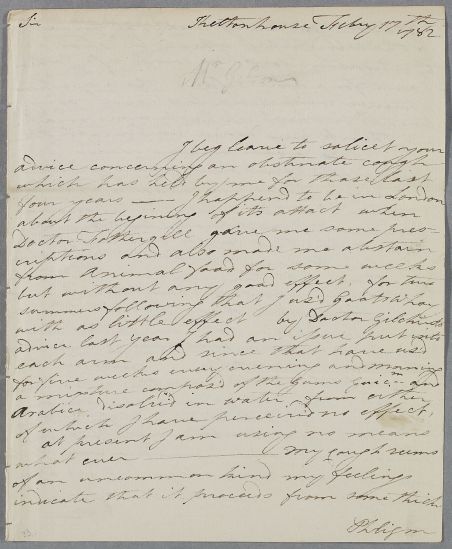 Sir
Skettonhouse Febry 17th
1782
Mr
I beg leave to solicet your
advice concerning an obstinate cough
which has held by me for these last
four years — I happend to be in London
about the begining of its attact when
Doctor Fothergill gave me some pres-
criptions and also made me abstain
from Animal food for some weeks
but without any good effect, for two
summers following that I used Goatswhey
with as little effect by Doctor Gilchrists
advice last year I had an issue put into
each arm and since that have used
for five weeks every evening and morning
a mixture composd of the Gums Guiacm and
Arabic disolv'd in water, from either
of which I have perceived no effect,
at present I am using no means
what ever — my cough seems
of an uncommon kind my feelings
indicate that it proceeds from some thick
Phlegm